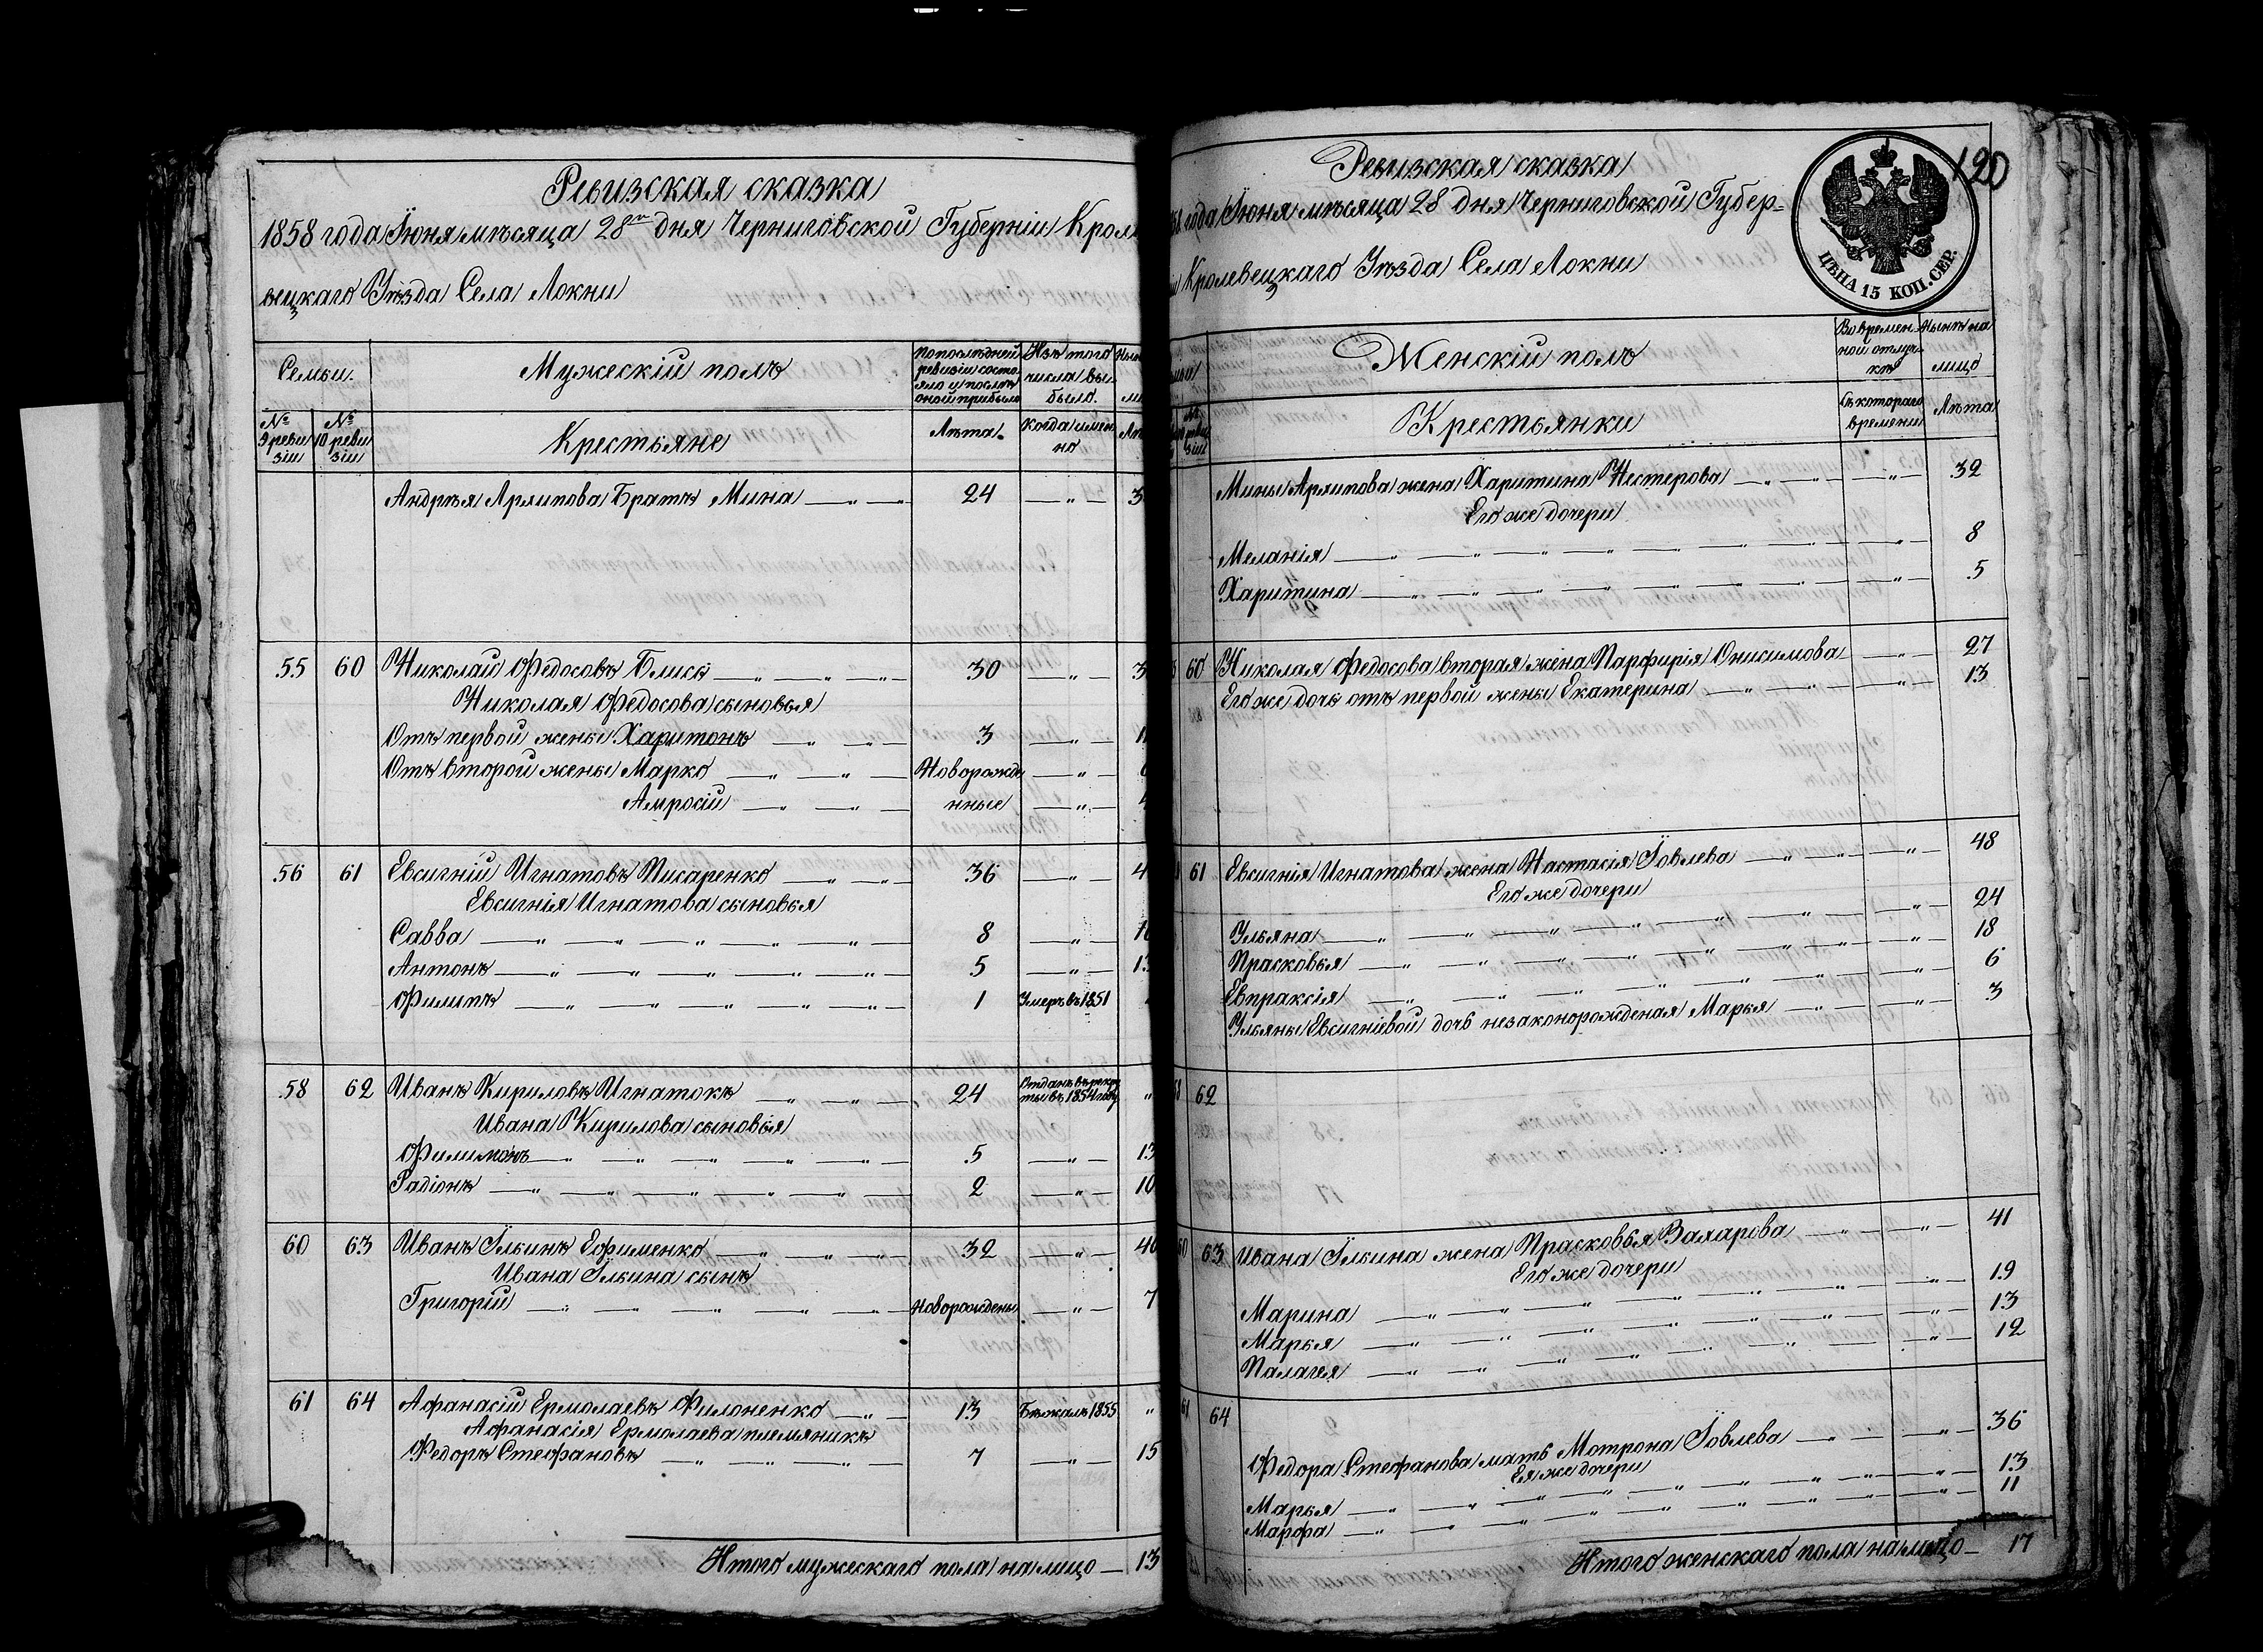 Ревизская сказка
1858 года Іюня мѣсяца 28го дня Черниговской Губерніи Крол
вецкаго Уѣзда Села Локни
Семьи.
Мужескій полъ
По послѣдней ревизіи состояло и послѣ оной прибыло
Изъ того числа выбыло.
№ 9 ревизіи
№ 10 ревизіи
Крестьяне
Лѣта.
Когда именно
Андрѣя Архипова Братъ Мина 24 — " — 3
55 60 Николай Федосовъ Блисъ 30 — " — 3
Николая Федосова сыновья
Отъ первой жены Харитонъ 3 — " — 1
Отъ второй жены Марко Новорожде — " —
Амросій нные — " —
56 61 Евсигній Игнатовъ Писаренко 36 — " — 4
Евсигнія Игнатова сыновья
Савва 8 — " — 1
Антонъ 5 — " — 13
Филипъ 1 Умеръ въ 1851
58 62 Иванъ Кириловъ Игнатокъ 24 Отданъ въ рекруты въ 1854 году "
Ивана Кирилова сыновья
Филимонъ 5 — " — 13
Радіонъ 2 — " — 10
60 63 Иванъ Илькинъ Ефименко 32 — " — 40
Ивана Илькина сынъ
Григорій новорожденъ — " — 7
61 64 Афанасій Ермолаевъ Филоненко 13 Бѣжалъ 1855 "
Афанасія Ермолаева племяникъ
Федоръ Стефановъ 7 — " — 15
Итого мужескаго пола на лицо — 13
120
Ревизская сказка
58 года Іюня мѣсяца 28 дня Черниговской Губер-
ніи Кролевецкаго Уѣзда Села Локни
ЦѢНА 15 КОП. СЕР.
Женскій полъ
Во временной отлучкѣ
Нынѣ на лицо
Крестьянки
Съ котораго времени
Лѣта
Мины Архипова жена Харитина Нестерова — " — 32
Его же дочери
Меланія — " — 8
Харитина — " — 5
60 Николая Федосова вторая жена Парфирія Онисимова — " — 27
Его же дочь отъ первой жены Екатерина — " — 13
61 Евсигнія Игнатова жена Настасія Іовлева — " — 48
Его же дочери
Ульяна — " — 24
Прасковья — " — 18
Евпраксія — " — 6
Ульяны Евсигніевой дочь незаконорожденая Марья — " — 3
62
63 Ивана Илькина жена Прасковья Захарова — " — 41
Его же дочери
Марина — " — 19
Марья — " — 13
Палагея — " — 12
61 64
Федора Стефанова мать Мотрона Іовлева — " — 36
Ея же дочери
Марья — " — 13
Марфа — " — 11
Итого женскаго пола на лицо — 17